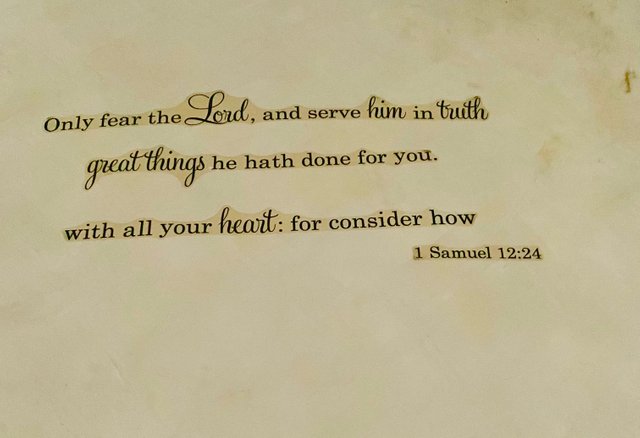 Only fear the Lord, and serve him in truth
great things he hath done for you.
with all your heart: for consider how
1 Samuel 12:24